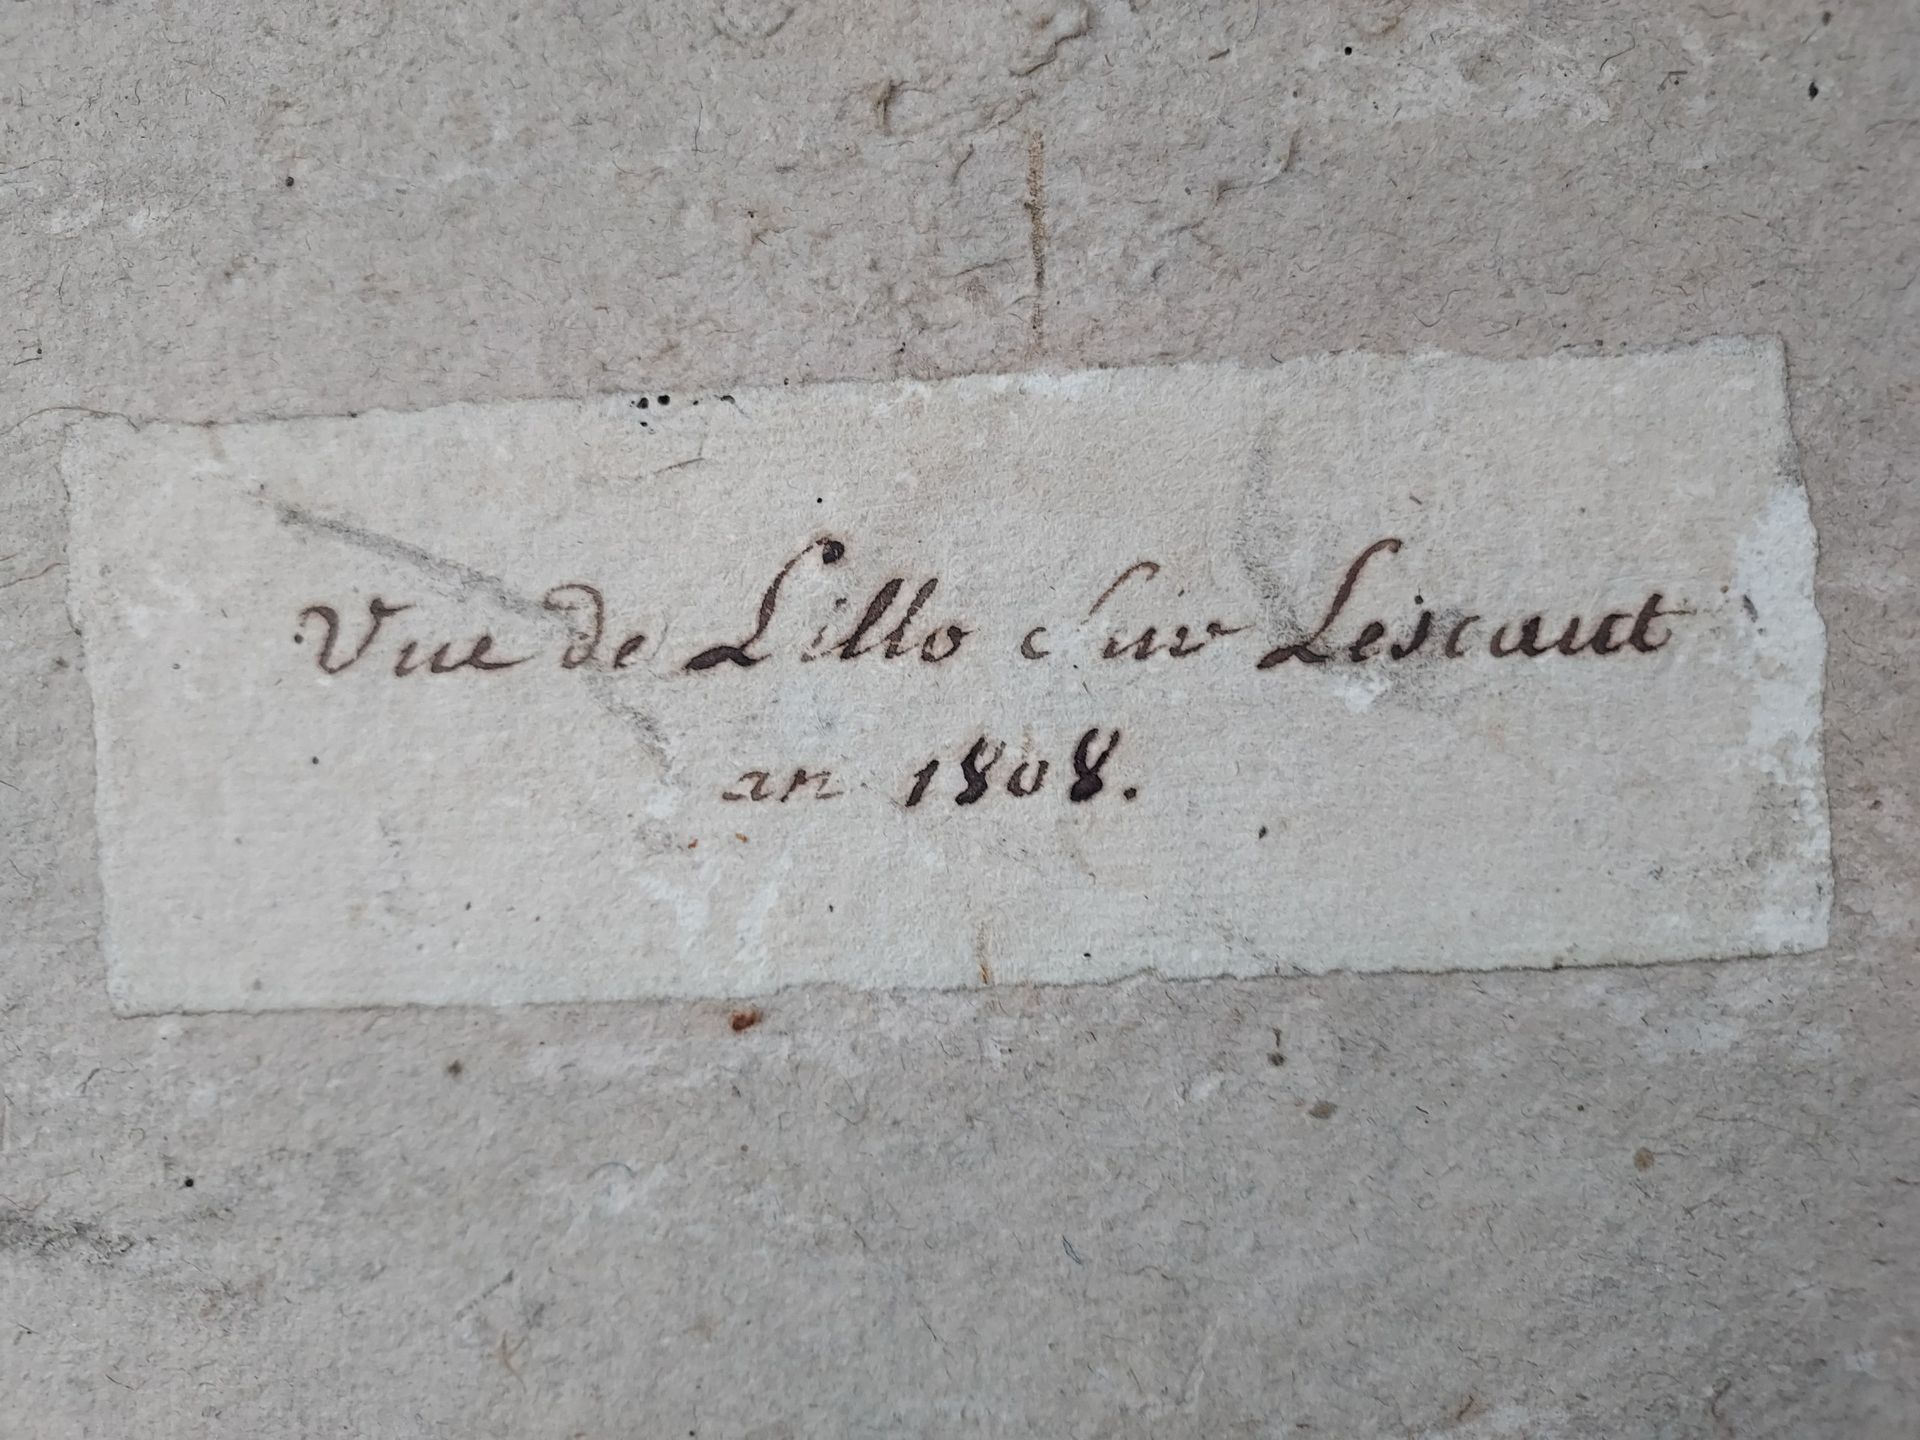 Vue de Lillo Sur Lescaut
an 1808.